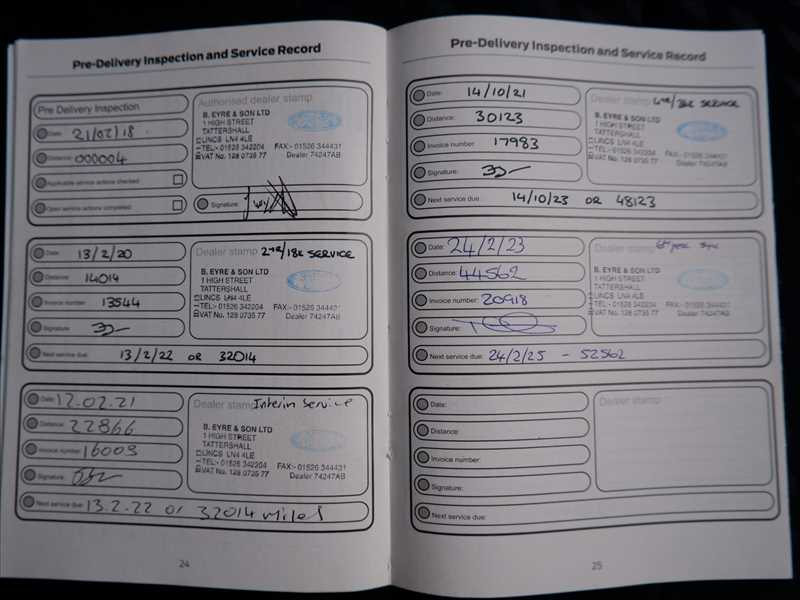 Pre-Delivery Inspection and Service Record
Pre Delivery Inspection
Date: 21/02/18
Distance: 000004
Applicable service actions checked
Open service actions completed
Authorised dealer stamp
B. EYRE & SON LTD
1 HIGH STREET
TATTERSHALL
LINCS LN4 4LE
TEL:- 01526 342204 FAX:- 01526 344431
VAT No. 128 0735 77 Dealer 74247AB
Signature:
Date: 13/2/20
Distance: 14014
Invoice number: 13544
Signature:
Next service due: 13/2/22 OR 32014
Dealer stamp 2YR/18K SERVICE
B. EYRE & SON LTD
1 HIGH STREET
TATTERSHALL
LINCS LN4 4LE
TEL:- 01526 342204 FAX:- 01526 344431
VAT No. 128 0735 77 Dealer 74247AB
Date: 12.02.21
Distance: 22866
Invoice number: 16003
Signature:
Next service due: 13.2.22 or 32014 miles
Dealer stamp Interim Service
B. EYRE & SON LTD
1 HIGH STREET
TATTERSHALL
LINCS LN4 4LE
TEL:- 01526 342204 FAX:- 01526 344431
VAT No. 128 0735 77 Dealer 74247AB
24
Pre-Delivery Inspection and Service Record
Date: 14/10/21
Distance: 30123
Invoice number: 17983
Signature:
Next service due: 14/10/23 OR 48123
Dealer stamp SERVICE
B. EYRE & SON LTD
1 HIGH STREET
TATTERSHALL
LINCS LN4 4LE
TEL:- 01526 342204 FAX:- 01526 344431
VAT No. 128 0735 77 Dealer 74247AB
Date: 24/2/23
Distance: 44562
Invoice number: 20918
Signature:
Next service due: 24/2/25 - 52562
Dealer stamp
B. EYRE & SON LTD
1 HIGH STREET
TATTERSHALL
LINCS LN4 4LE
TEL:- 01526 342204 FAX:- 01526 344431
VAT No. 128 0735 77 Dealer 74247AB
Date:
Distance:
Invoice number:
Signature:
Next service due:
Dealer stamp
25